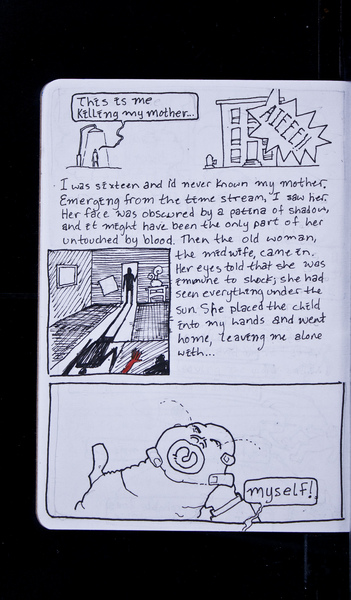 This is me
Killing my mother...
AIEEEE!!
I was sixteen and i'd never known my mother.
Emerging from the time stream, I saw her.
Her face was obscured by a patina of shadow,
and it might have been the only part of her
untouched by blood. Then the old woman,
the midwife, came in.
Her eyes told that she was
immune to shock; she had
seen everything under the
sun. She placed the child
into my hands and went
home, leaving me alone
with...
myself!